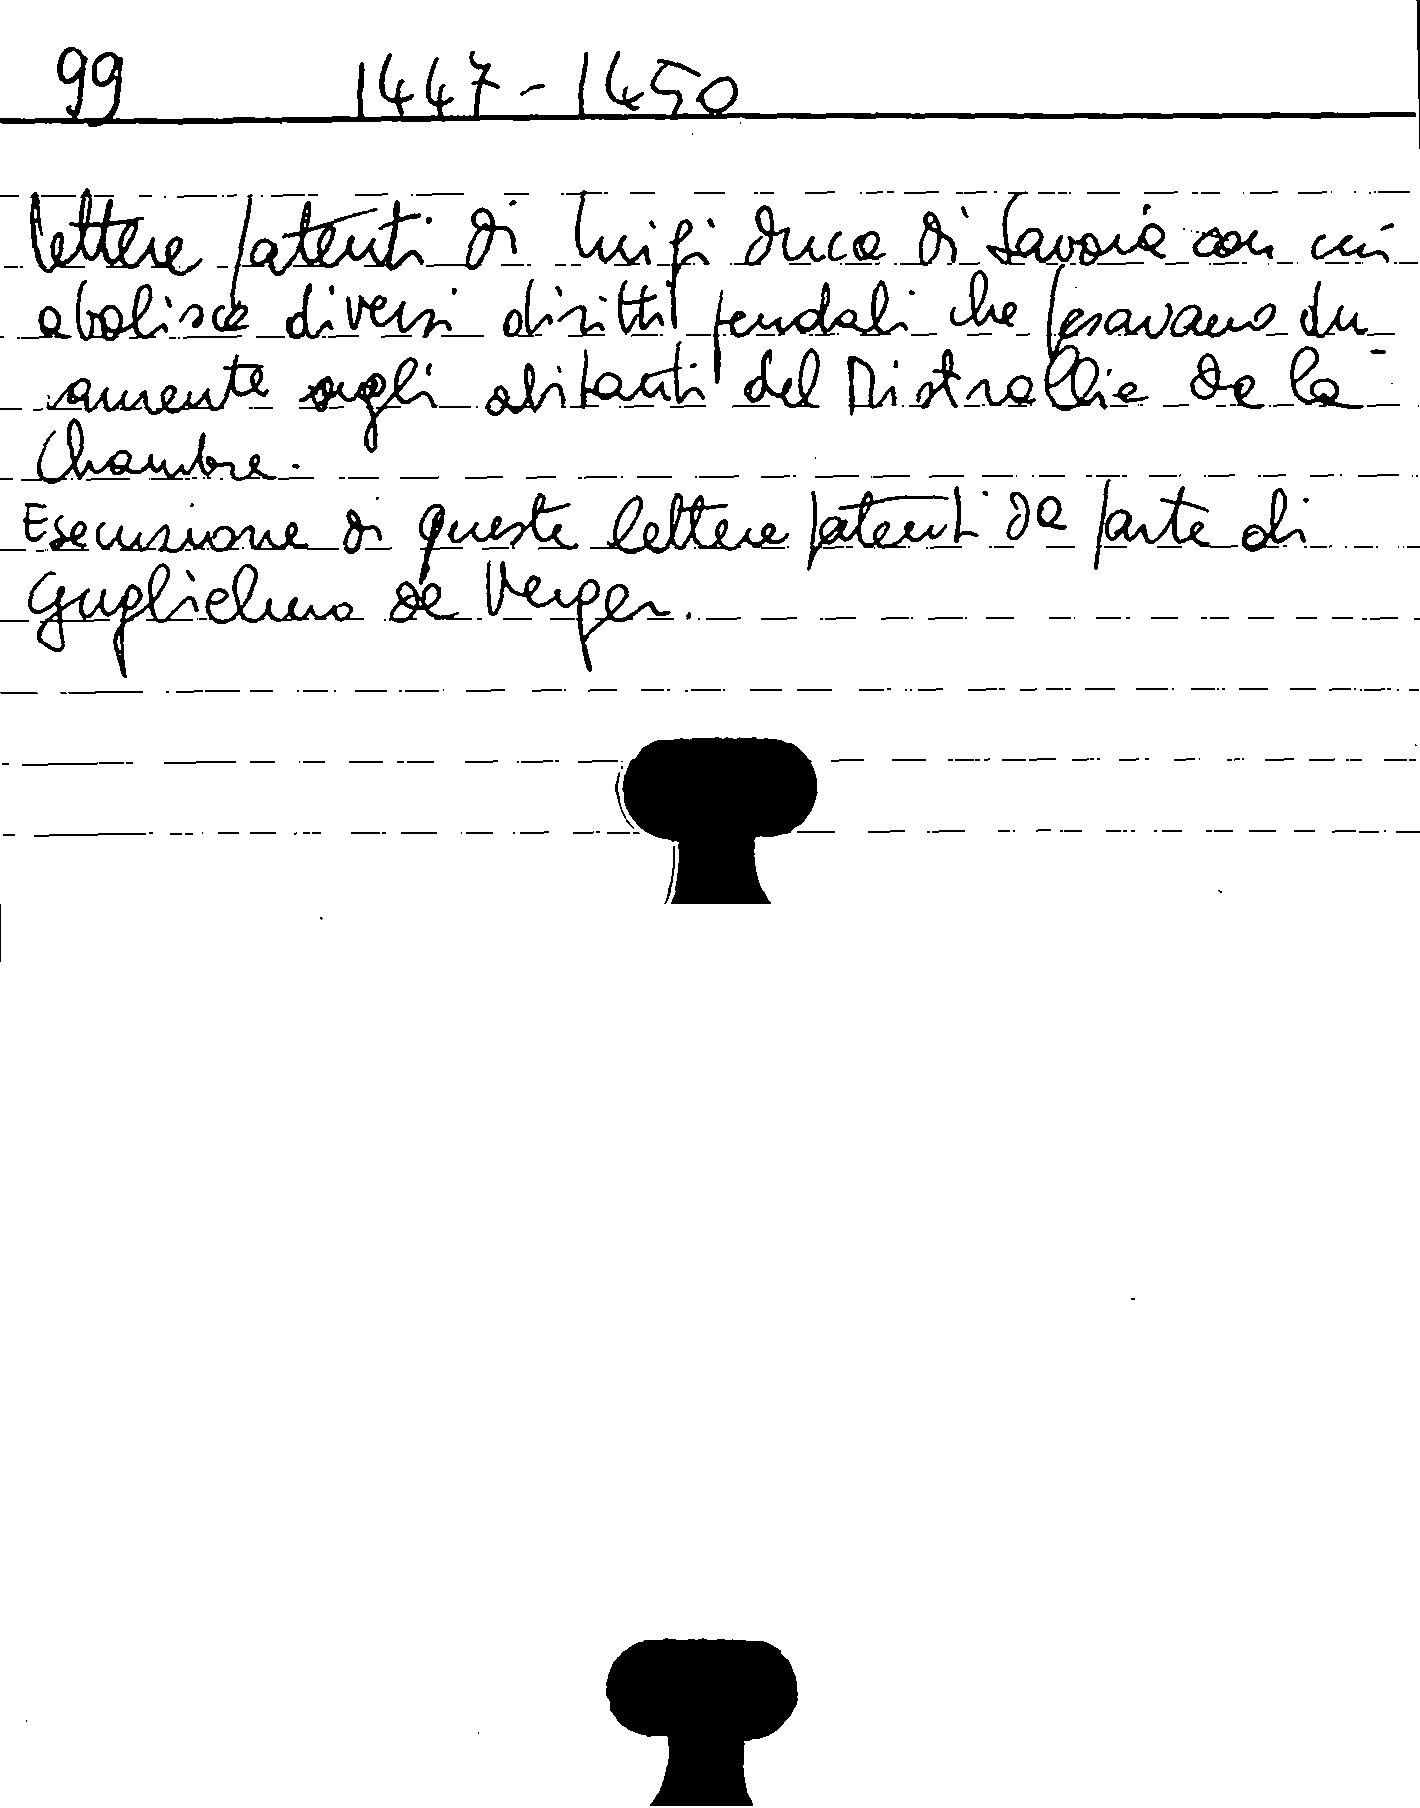 99 1447-1450
Lettere patenti di Luigi Duca di Savoia con cui
abolisce diversi diritti feudali che pesavano du-
ramente sugli abitanti del Mistrallie de la
Chambre.
Esecuzione di queste lettere patenti da parte di
Guglielmo de Verger.